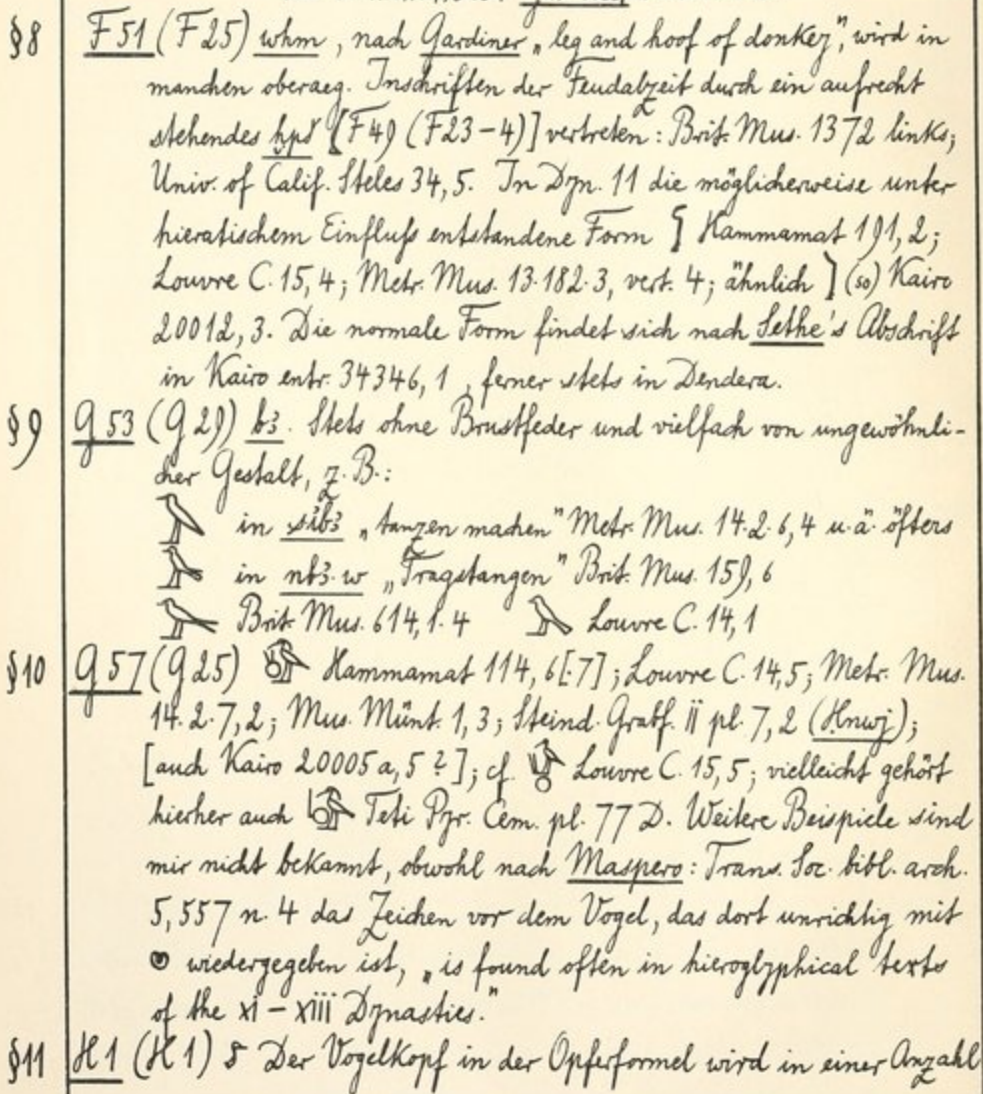 §8 F51 (F25) wḥm, nach Gardiner „leg and hoof of donkey“, wird in
manchen oberaeg. Inschriften der Feudalzeit durch ein aufrecht
stehendes ḫpš [F49 (F23-4)] vertreten: Brit. Mus. 1372 links;
Univ. of Calif. Steles 34,5. In Dyn. 11 die möglicherweise unter
hieratischem Einfluſs entstandene Form Hammamat 191,2;
Louvre C. 15,4; Metr. Mus. 13.182.3, vert. 4; ähnlich (so) Kairo
20012,3. Die normale Form findet sich nach Sethe's Abschrift
in Kairo entr. 34346,1, ferner stets in Dendera.
§9 G53 (G29) bꜣ. Stets ohne Brustfeder und vielfach von ungewöhnli-
cher Gestalt, z. B.:
in sı͗bꜣ „tanzen machen“ Metr. Mus. 14.2.6,4 u. ä. öfters
in nbꜣ.w „Tragstangen“ Brit. Mus. 159,6
Brit. Mus. 614,1.4 Louvre C. 14,1
§10 G57 (G25) Hammamat 114,6[.7]; Louvre C. 14,5; Metr. Mus.
14.2.7,2; Mus. Münt. 1,3; Steind. Grabf. II pl. 7,2 (Ḥnwj);
[auch Kairo 20005a,5?]; cf. Louvre C. 15,5; vielleicht gehört
hierher auch Teti Pyr. Cem. pl. 77 D. Weitere Beispiele sind
mir nicht bekannt, obwohl nach Maspero: Trans. Soc. bibl. arch.
5,557 n. 4 das Zeichen vor dem Vogel, das dort unrichtig mit
wiedergegeben ist, „is found often in hieroglyphical texts
of the xi – xiii Dynasties.“
§11 H1 (H1) 8 Der Vogelkopf in der Opferformel wird in einer Anzahl